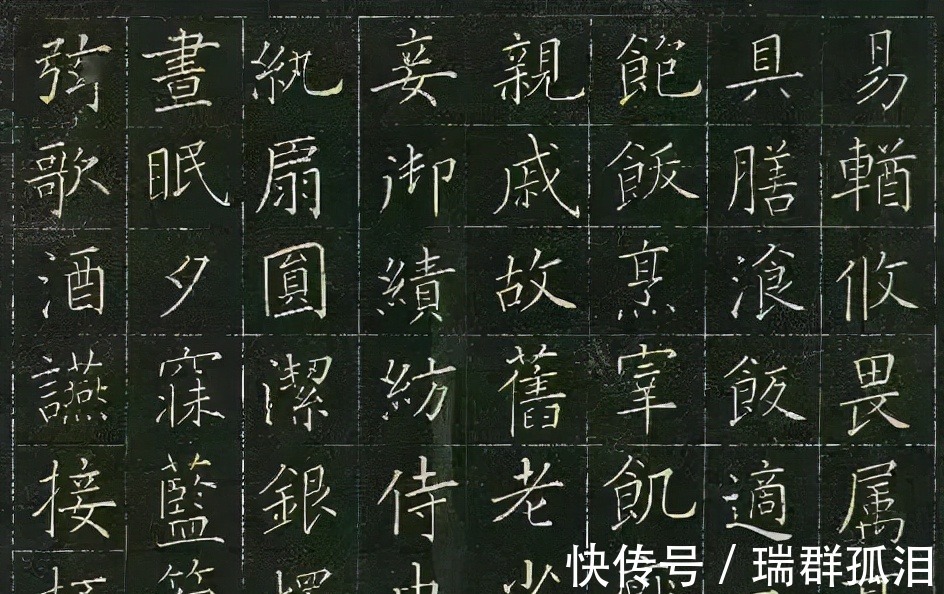 易輶攸畏属
具膳飡飯適
飽飫烹宰飢
親戚故舊老
妾御績紡侍
紈扇圓潔銀
晝眠夕寐藍
弦歌酒讌接
快传号 / 瑞群孤泪